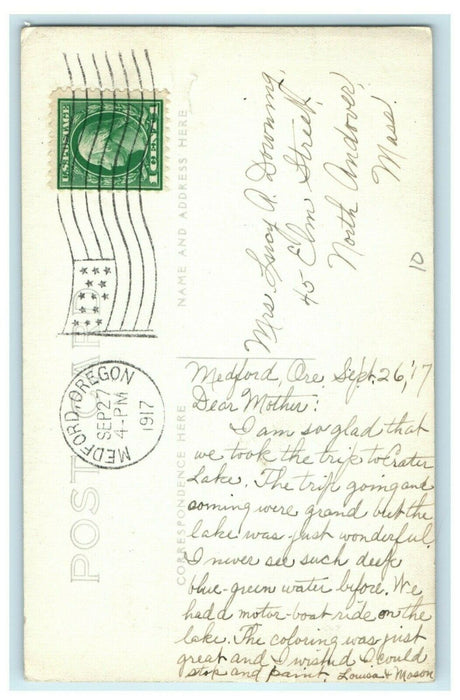 U.S. POSTAGE
1 CENT 1
MEDFORD, OREGON
SEP 27
4-PM
1917
POST CARD
NAME AND ADDRESS HERE
CORRESPONDENCE HERE
Mrs. Lucy A. Downing,
45 Elm Street,
North Andover,
Mass.
10
Medford, Ore. Sept. 26,'17
Dear Mother:
I am so glad that
we took the trip to Crater
Lake. The trip going and
coming were grand but the
lake was just wonderful.
I never see such deep
blue-green water before. We
had a motor-boat ride on the
lake. The coloring was just
great and I wished I could
stop and paint. Louisa & Mason